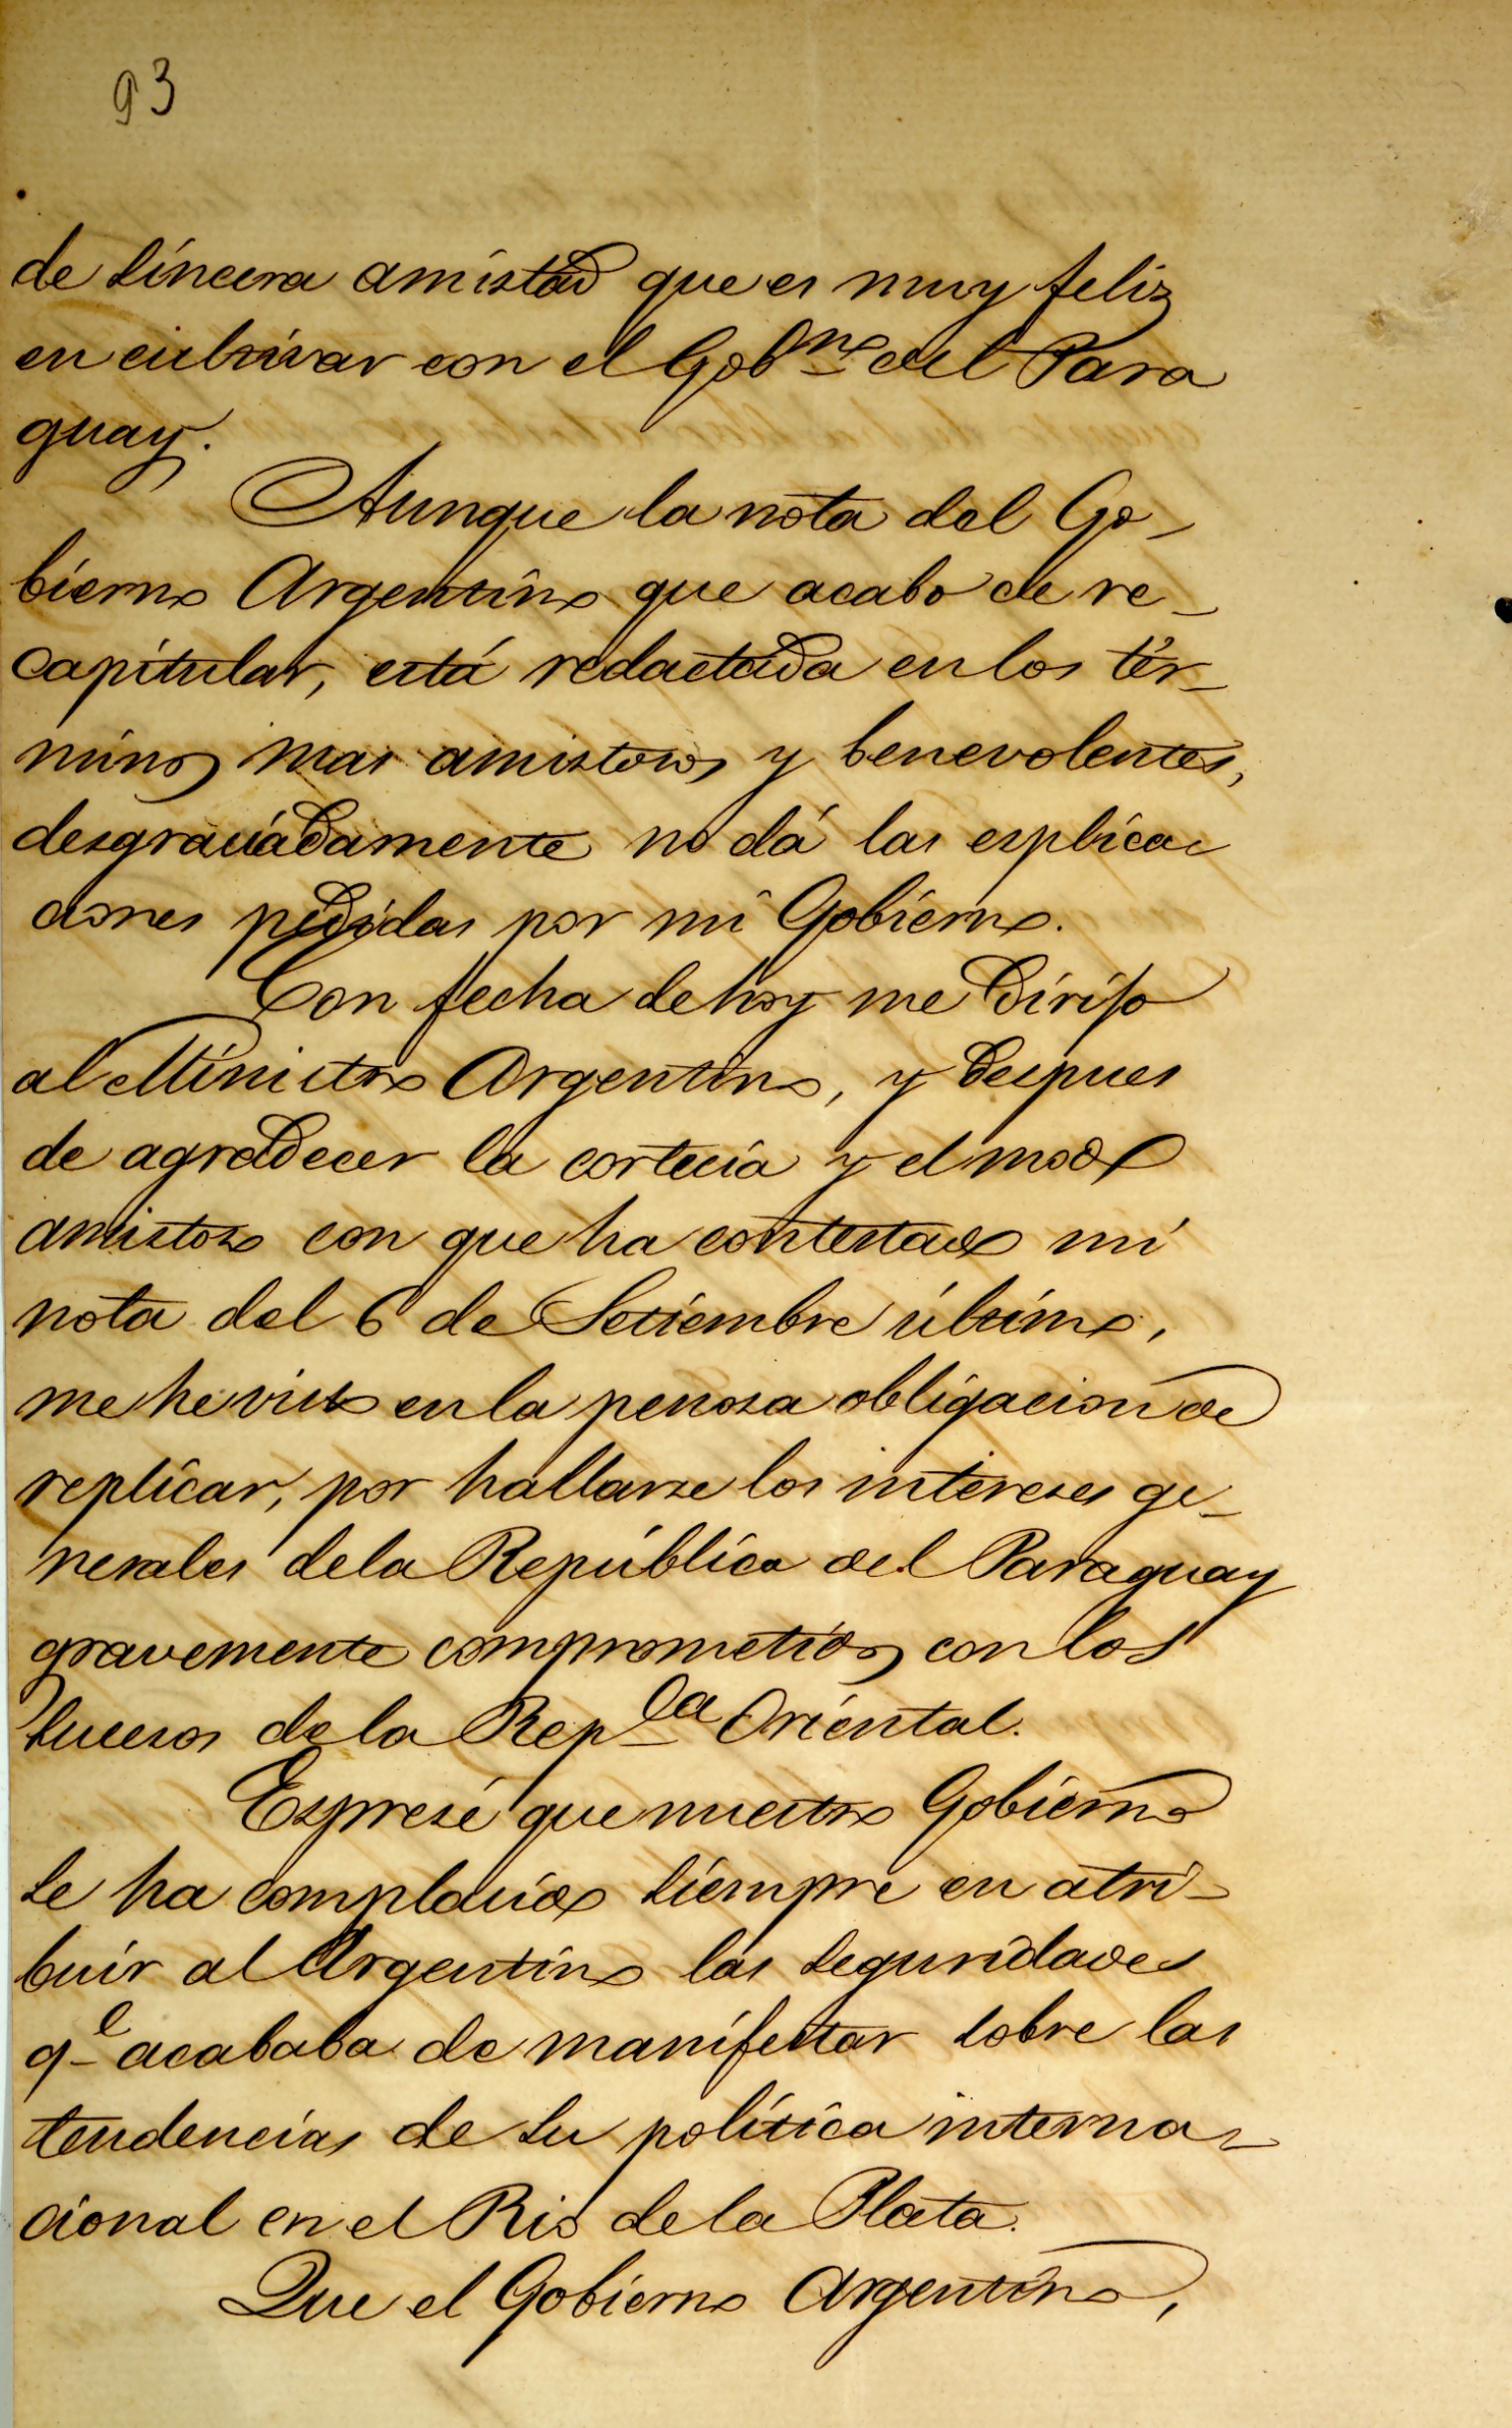 93
de sincera amistad que es muy feliz
en cultivar con el Gobno del Para
guay.
Aunque la nota del Go-
bierno Argentino que acabo de re-
capitular, está redactada en los tér-
minos mas amistosos y benevolentes,
desgraciadamente no dá las esplica-
ciones pedidas por mi Gobierno.
Con fecha de hoy me dirijo
al Ministro Argentino, y despues
de agradecer la cortecia y el modo
amistoso con que ha contestado mi
nota del 6 de Setiembre último,
me he visto en la penosa obligacion de
replicar, por hallarse los intereses ge-
nerales de la República del Paraguay
gravemente comprometidos con los
sucesos de la Repca Oriental.
Espresé que nuestro Gobierno
se ha complacido siempre en atri-
buir al Argentino las seguridades
qe acababa de manifestar sobre las
tendencias de su política interna-
cional en el Rio de la Plata.
Que el Gobierno Argentino,